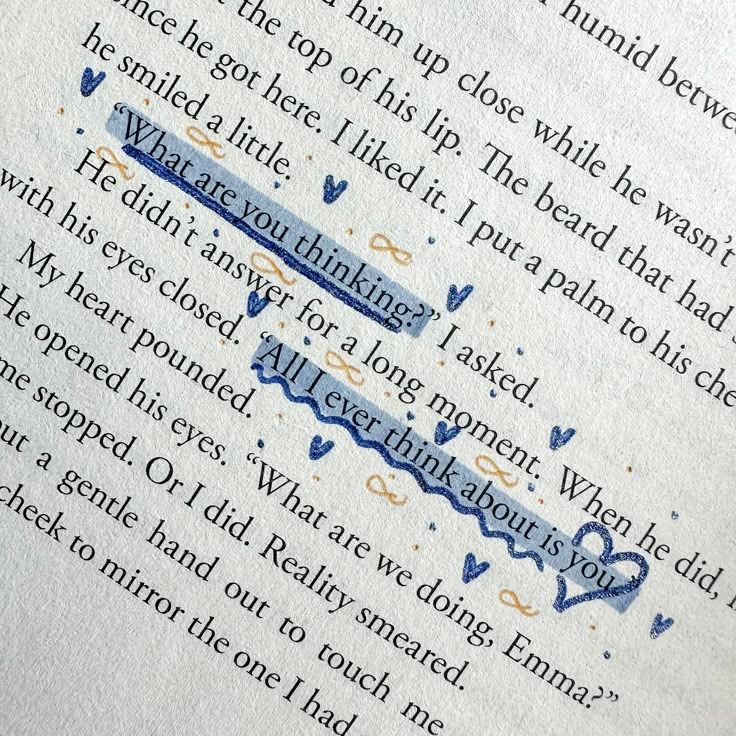 humid betwe
him up close while he wasn't
the top of his lip. The beard that had
since he got here. I liked it. I put a palm to his che
he smiled a little.
“What are you thinking?” I asked.
He didn't answer for a long moment. When he did,
with his eyes closed. “All I ever think about is you.”
My heart pounded.
He opened his eyes. “What are we doing, Emma?”
me stopped. Or I did. Reality smeared.
ut a gentle hand out to touch me
cheek to mirror the one I had